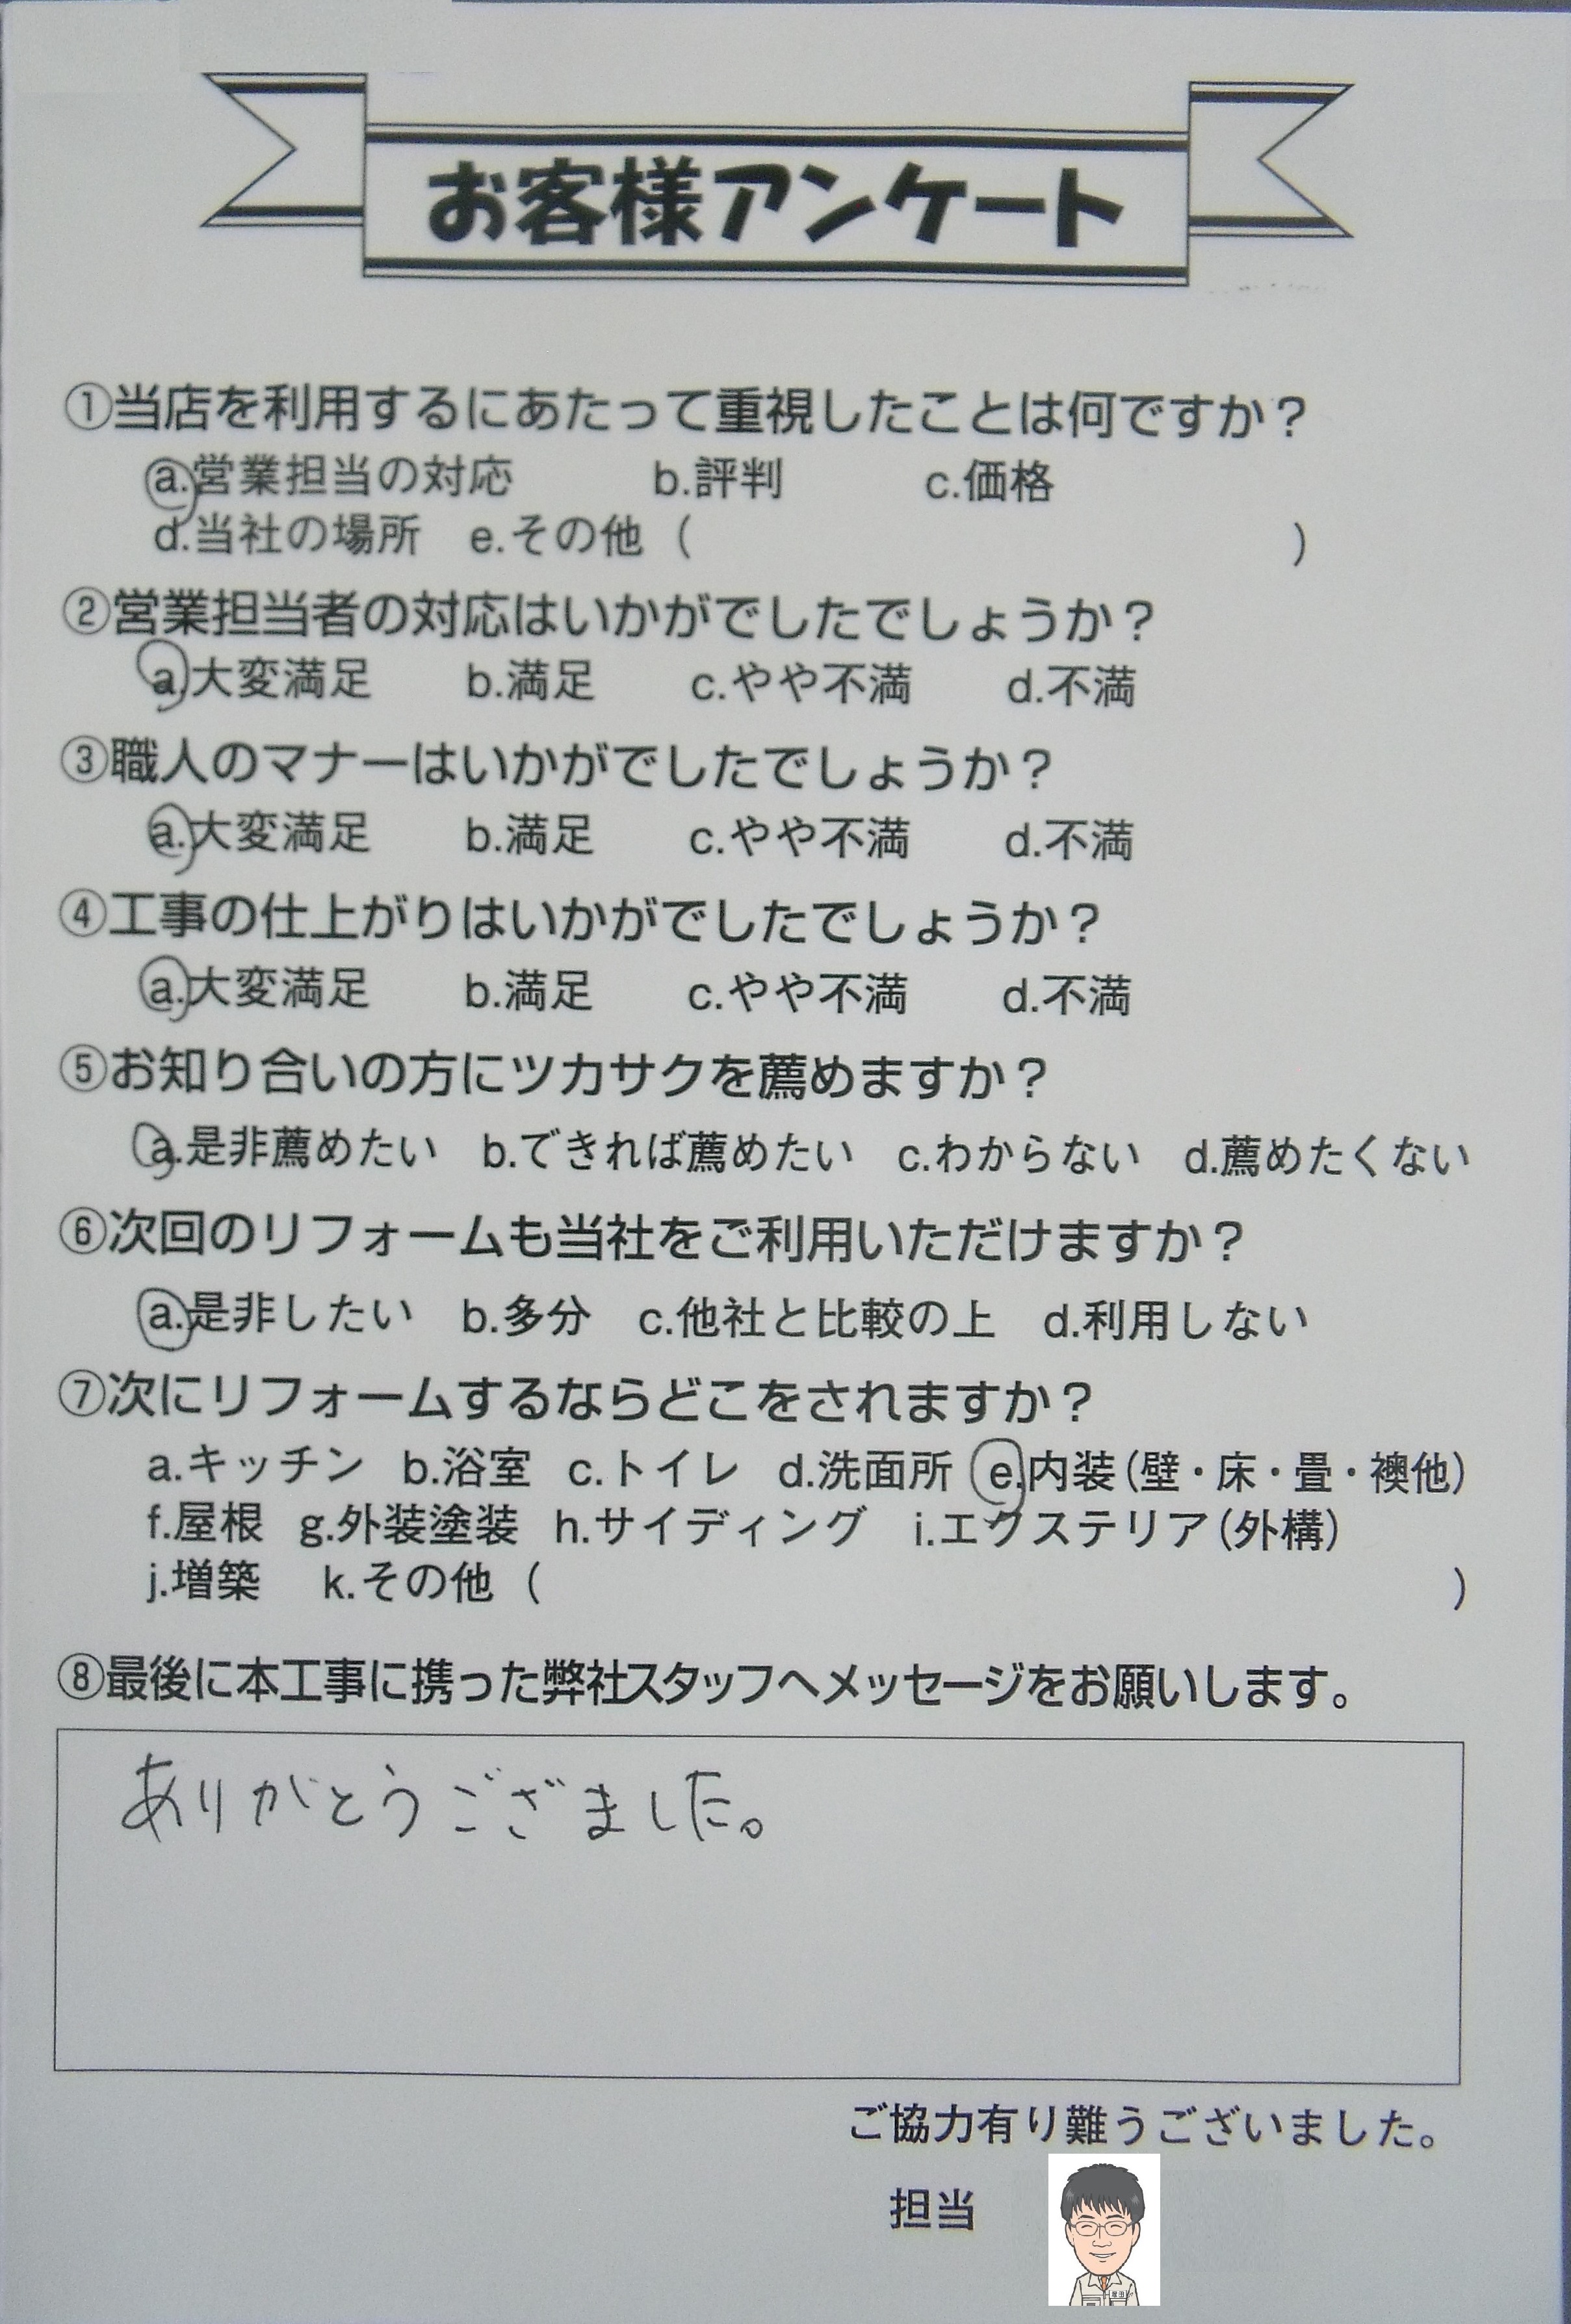 お客様アンケート
①当店を利用するにあたって重視したことは何ですか？
a.営業担当の対応 b.評判 c.価格
d.当社の場所 e.その他（ ）
②営業担当者の対応はいかがでしたでしょうか？
a.大変満足 b.満足 c.やや不満 d.不満
③職人のマナーはいかがでしたでしょうか？
a.大変満足 b.満足 c.やや不満 d.不満
④工事の仕上がりはいかがでしたでしょうか？
a.大変満足 b.満足 c.やや不満 d.不満
⑤お知り合いの方にツカサクを薦めますか？
a.是非薦めたい b.できれば薦めたい c.わからない d.薦めたくない
⑥次回のリフォームも当社をご利用いただけますか？
a.是非したい b.多分 c.他社と比較の上 d.利用しない
⑦次にリフォームするならどこをされますか？
a.キッチン b.浴室 c.トイレ d.洗面所 e.内装（壁・床・畳・襖他）
f.屋根 g.外装塗装 h.サイディング i.エクステリア（外構）
j.増築 k.その他（ ）
⑧最後に本工事に携った弊社スタッフへメッセージをお願いします。
ありがとうござました。
ご協力有り難うございました。
担当